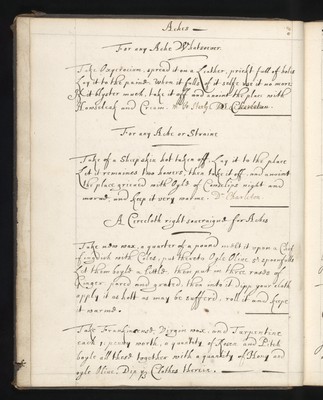 Aches
For any Ache Whatsoever.
Take Oxycrocium, spread it on a Leather, prickt full of holes
Lay it to the paine. When it falls of it selfe use it no more
If it blyster much, take it off and anoint the place with
Houseleek and Cream.
For any Ache or Straine
Take of a Sheepskin hot taken off. Lay it to the place
Let it remaine 2 howers, then take it off, and annoint
the place grieved with Oyle of Cowslips night and
morne, and keep it very warme.
A Cirecloth right soveraigne for Aches
Take new wax, a quarter of a pound melt it upon a Chaf
fingdish with Coles, put thereto Oyle Olive 2 spoonfulls
let them boyle a little, then put in three rases of
Ginger pared and grated, then into it dipp your cloth
apply it as hott as may be suffered, roll it and keepe
it warme.
Take Frankincense, Virgin wax, and Turpentine
each 1 penny worth, a quantity of Rosen and Pitch
boyle all these together with a quantity of Hony and
oyle Olive, Dip yr Clothes therein.